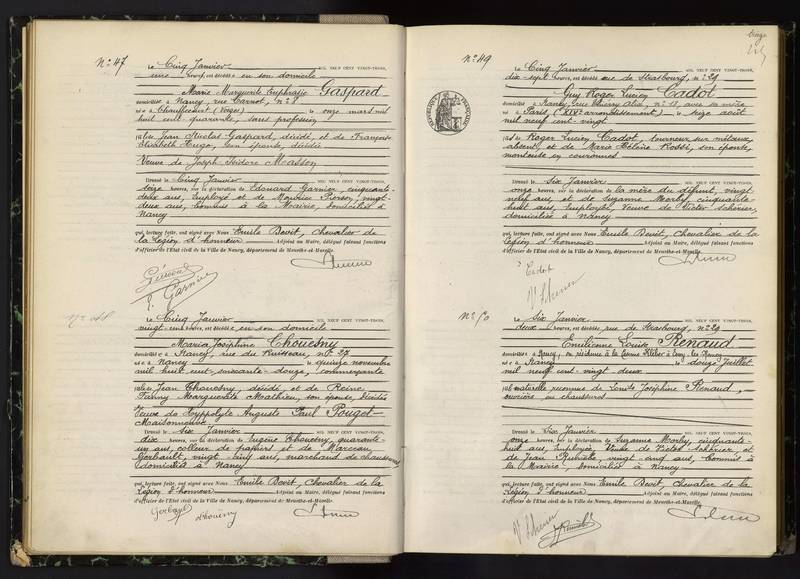 N° 47
Le Cinq Janvier MIL NEUF CENT VINGT-TROIS,
une heure, est décédée en son domicile
Marie Marguerite Euphrasie Gaspard
domiciliée à Nancy, rue Carnot, n° 8
née à (Vosges) le onze mars mil
huit cent quarante, sans profession
fille de Jean Nicolas Gaspard, décédé, et de Françoise
Elisabeth Hugo, son épouse, décédée
Veuve de Joseph Isidore Masson
Dressé le Cinq Janvier MIL NEUF CENT VINGT-TROIS,
seize heures, sur la déclaration de Edouard Garnier, cinquante-
deux ans, employé et de Maurice vingt-
deux ans, commis à la Mairie, domiciliés à
Nancy
qui, lecture faite, ont signé avec Nous Emile Devit, chevalier de
la Légion d'honneur Adjoint au Maire, délégué faisant fonctions
d'officier de l'État civil de la Ville de Nancy, département de Meurthe-et-Moselle.
E. Garnier
N° 48
Le Cinq Janvier MIL NEUF CENT VINGT-TROIS,
vingt heures, est décédée en son domicile
Maria Joséphine Chouesny
domiciliée à Nancy, rue du Ruisseau, n° 27
née à Nancy le quinze novembre
mil huit cent soixante-douze, commerçante
fille de Jean Chouesny, décédé et de Reine
Fanny Marguerite Mathieu, son épouse, décédée
Veuve de Hyppolyte Auguste Paul Pouget-
Maisonneuve
Dressé le Six Janvier MIL NEUF CENT VINGT-TROIS,
dix heures, sur la déclaration de Eugène Chouesny, quarante-
un ans, colleur de papiers et de Marceau
Gerbault, vingt cinq ans, marchand de chaussures
domiciliés à Nancy
qui, lecture faite, ont signé avec Nous Emile Devit, chevalier de la
Légion d'honneur Adjoint au Maire, délégué faisant fonctions
d'officier de l'État civil de la Ville de Nancy, département de Meurthe-et-Moselle.
Chouesny
N° 49
Le Cinq Janvier MIL NEUF CENT VINGT-TROIS,
dix sept heures, est décédé rue de Strasbourg, n° 29
Guy Roger Lucien Cadot
domicilié à Nancy, rue n° 13, avec sa mère
né à Paris (XIVe arrondissement) le seize août
mil neuf cent vingt
fils de Roger Lucien Cadot, tourneur sur métaux,
absent, et de Marie Hélène Robbi, son épouse,
monteuse en couronnes
Dressé le Six Janvier MIL NEUF CENT VINGT-TROIS,
onze heures, sur la déclaration de la mère du défunt, vingt
neuf ans, et de Suzanne Morly, cinquante-
huit ans, employée, Veuve de Victor
domiciliée à Nancy
qui, lecture faite, ont signé avec Nous Emile Devit, Chevalier de la
Légion d'honneur Adjoint au Maire, délégué faisant fonctions
d'officier de l'État civil de la Ville de Nancy, département de Meurthe-et-Moselle.
Cadot
N° 50
Le Six Janvier MIL NEUF CENT VINGT-TROIS,
deux heures, est décédée rue de Strasbourg, n° 29
Emilienne Louise Renaud
née à Nancy le douze Juillet
mil neuf cent vingt deux
fille naturelle reconnue de Louise Joséphine Renaud,
ouvrière en chaussures
Dressé le Six Janvier MIL NEUF CENT VINGT-TROIS,
onze heures, sur la déclaration de Suzanne Morly, cinquante-
huit ans, employée, Veuve de Victor et
de Jean vingt cinq ans, commis à
la Mairie, domiciliés à Nancy
qui, lecture faite, ont signé avec Nous Emile Devit, chevalier de la
Légion d'honneur Adjoint au Maire, délégué faisant fonctions
d'officier de l'État civil de la Ville de Nancy, département de Meurthe-et-Moselle.